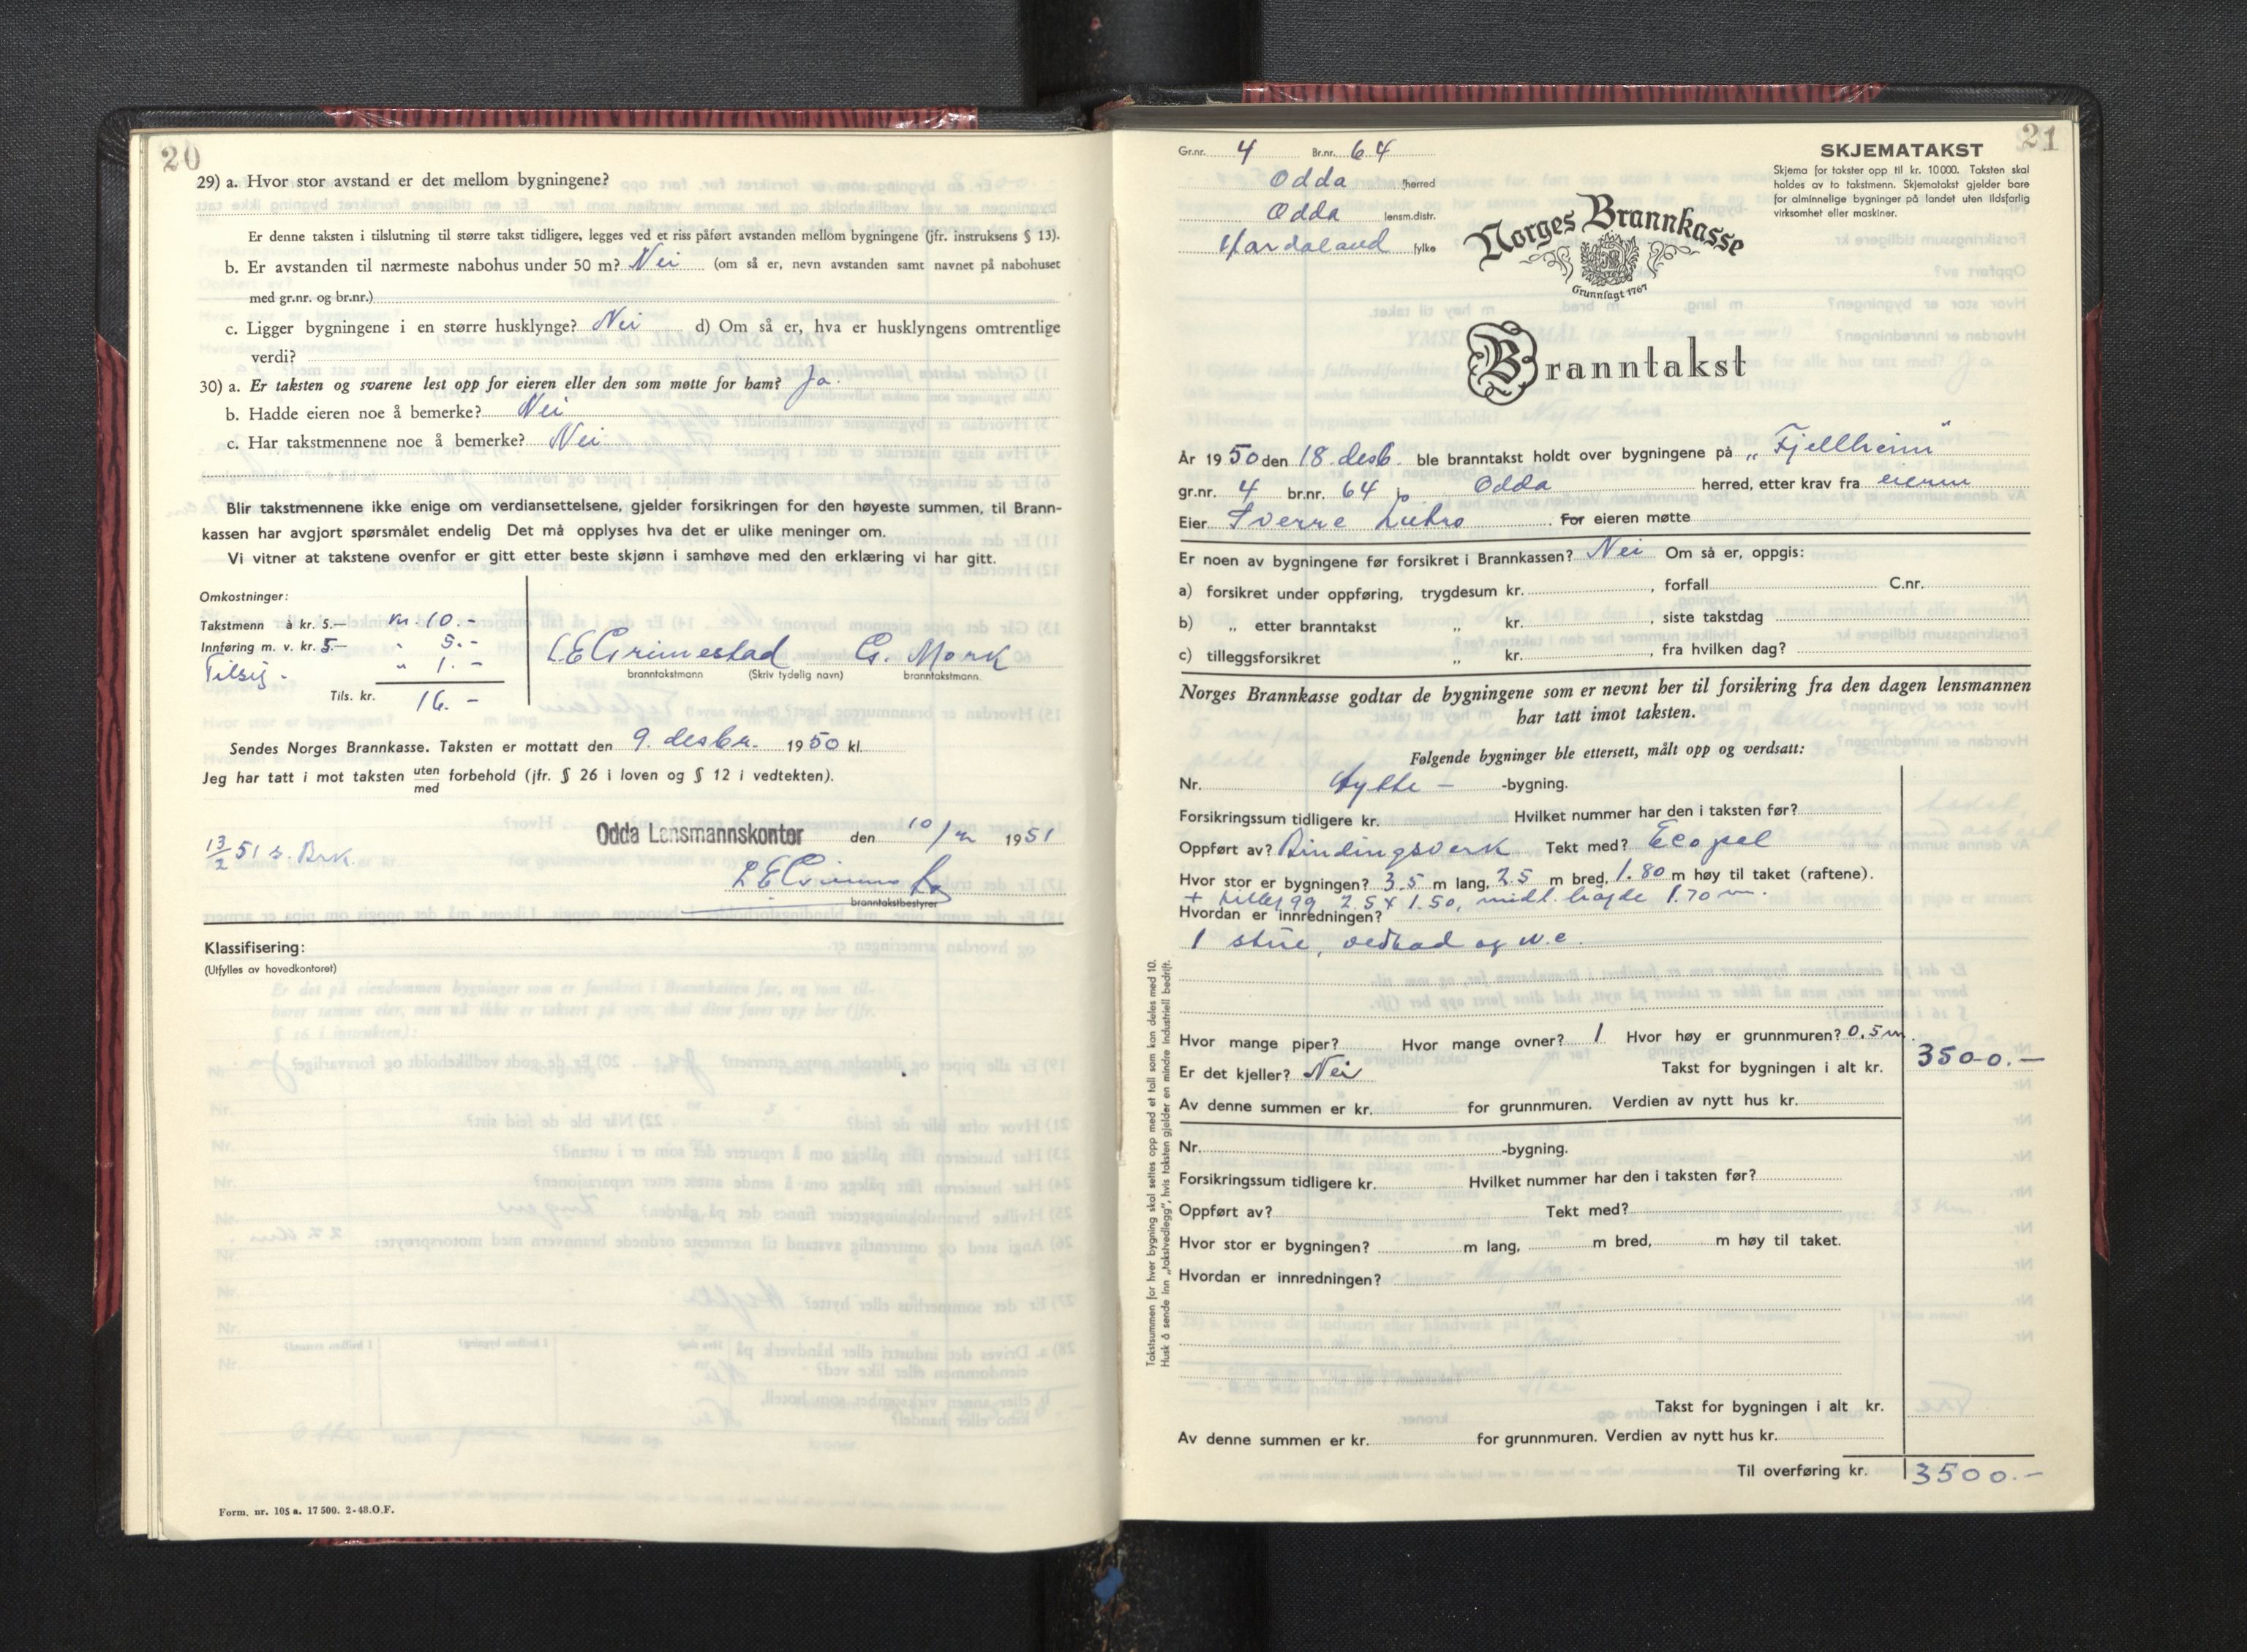 20
29) a. Hvor stor avstand er det mellom bygningene?
Er denne taksten i tilslutning til større takst tidligere, legges ved et riss påført avstanden mellom bygningene (jfr. instruksens § 13).
b. Er avstanden til nærmeste nabohus under 50 m? Nei (om så er, nevn avstanden samt navnet på nabohuset
med gr.nr. og br.nr.)
c. Ligger bygningene i en større husklynge? Nei d) Om så er, hva er husklyngens omtrentlige
verdi?
30) a. Er taksten og svarene lest opp for eieren eller den som møtte for ham? Ja.
b. Hadde eieren noe å bemerke? Nei
c. Har takstmennene noe å bemerke? Nei
Blir takstmennene ikke enige om verdiansettelsene, gjelder forsikringen for den høyeste summen, til Brann-
kassen har avgjort spørsmålet endelig Det må opplyses hva det er ulike meninger om.
Vi vitner at takstene ovenfor er gitt etter beste skjønn i samhøve med den erklæring vi har gitt.
Omkostninger:
Takstmenn à kr. 5.— kr. 10.-
Innføring m. v. kr. 5.— " 5.-
Tilsig. " 1.-
Tils. kr. 16.-
L E Grimestad G. Mork
branntakstmann (Skriv tydelig navn) branntakstmann.
Sendes Norges Brannkasse. Taksten er mottatt den 9. desbr. 1950 kl.
Jeg har tatt i mot taksten uten/med forbehold (jfr. § 26 i loven og § 12 i vedtekten).
Odda Lensmannskontor den 10/ 1951
13/2 51 s. Brk.
branntakstbestyrer
Klassifisering:
(Utfylles av hovedkontoret)
Form. nr. 105 a. 17 500. 2-48.O.F.
21
Gr.nr. 4 Br.nr. 64
Odda herred
Odda lensm.distr.
Hordaland fylke
SKJEMATAKST
Skjema for takster opp til kr. 10 000. Taksten skal
holdes av to takstmenn. Skjematakst gjelder bare
for alminnelige bygninger på landet uten ildsfarlig
virksomhet eller maskiner.
Norges Brannkasse
Grunnlagt 1767
Branntakst
År 1950 den 18. desb. ble branntakst holdt over bygningene på „Fjellheim"
gr.nr. 4 br.nr. 64 i Odda herred, etter krav fra eieren
Eier Sverre Lutro. For eieren møtte
Er noen av bygningene før forsikret i Brannkassen? Nei Om så er, oppgis:
a) forsikret under oppføring, trygdesum kr. , forfall C.nr.
b) „ etter branntakst „ kr. , siste takstdag
c) tilleggsforsikret „ kr. , fra hvilken dag?
Norges Brannkasse godtar de bygningene som er nevnt her til forsikring fra den dagen lensmannen
har tatt imot taksten.
Følgende bygninger ble ettersett, målt opp og verdsatt:
Nr. Hytte - -bygning.
Forsikringssum tidligere kr. Hvilket nummer har den i taksten før?
Oppført av? Bindingsverk Tekt med? Ecopel
Hvor stor er bygningen? 3.5 m lang, 2.5 m bred, 1.80 m høy til taket (raftene).
+ tillegg 2.5 x 1.50, midl. høgde 1.70 m.
Hvordan er innredningen?
1 stue, vedbod og w.c.
Hvor mange piper? Hvor mange ovner? 1 Hvor høy er grunnmuren? 0.5 m.
Er det kjeller? Nei Takst for bygningen i alt kr. 3500.—
Av denne summen er kr. for grunnmuren. Verdien av nytt hus kr.
Nr. -bygning.
Forsikringssum tidligere kr. Hvilket nummer har den i taksten før?
Oppført av? Tekt med?
Hvor stor er bygningen? m lang, m bred, m høy til taket.
Hvordan er innredningen?
Takst for bygningen i alt kr.
Av denne summen er kr. for grunnmuren. Verdien av nytt hus kr.
Til overføring kr. 3500.-
Takstsummen for hver bygning skal settes opp med et tall som kan deles med 10.
Husk å sende inn „takstvedlegg", hvis taksten gjelder en mindre industriell bedrift.